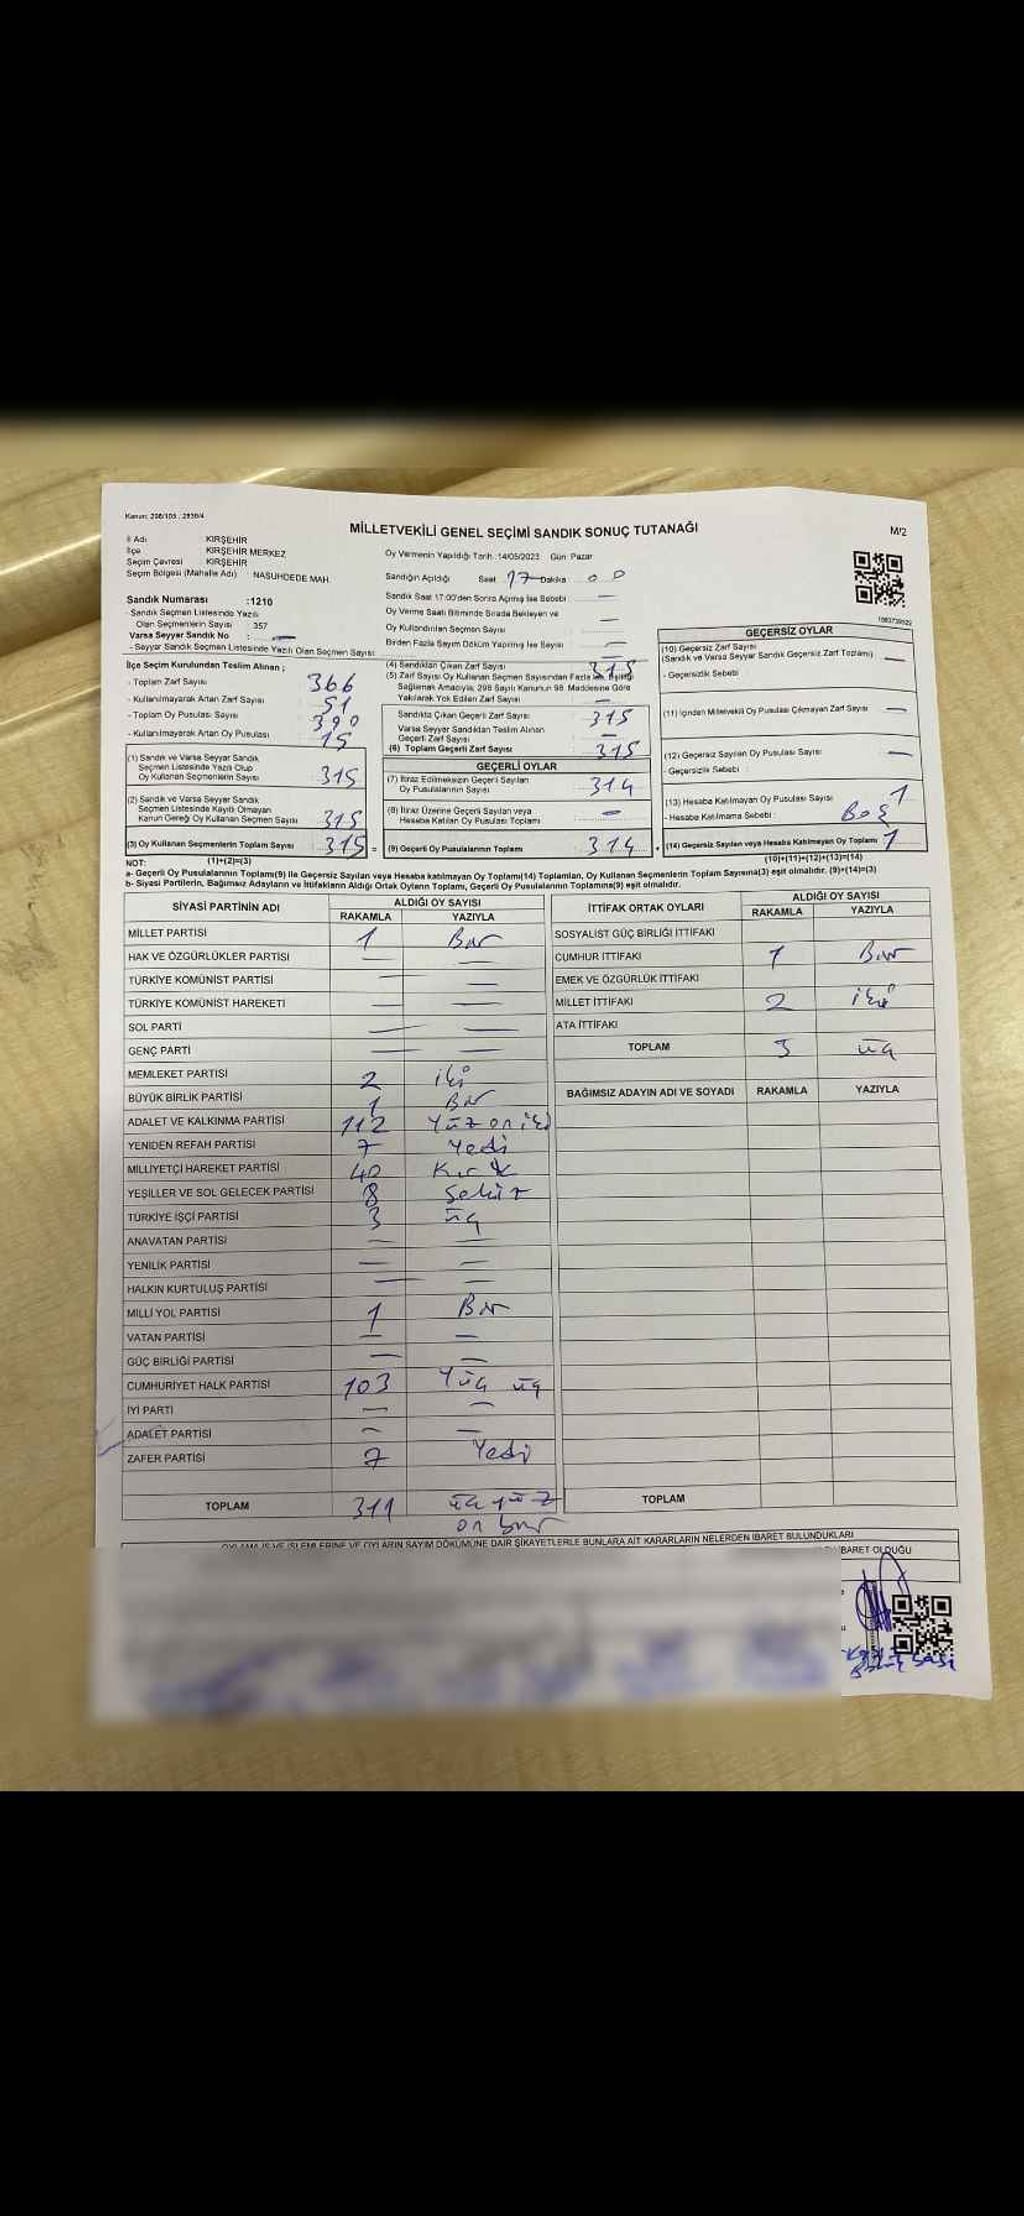 Kanun: 298/105 ; 2839/4
MİLLETVEKİLİ GENEL SEÇİMİ SANDIK SONUÇ TUTANAĞI
M/2
İl Adı KIRŞEHİR
İlçe KIRŞEHİR MERKEZ
Seçim Çevresi KIRŞEHİR
Seçim Bölgesi (Mahalle Adı) NASUHDEDE MAH.
Oy Vermenin Yapıldığı Tarih :14/05/2023 Gün :Pazar
Sandığın Açıldığı Saat 17 Dakika : 00
Sandık Saat 17:00'den Sonra Açılmış İse Sebebi : —
Oy Verme Saati Bitiminde Sırada Bekleyen ve
Oy Kullandırılan Seçmen Sayısı —
Birden Fazla Sayım Döküm Yapılmış İse Sayısı —
Sandık Numarası :1210
- Sandık Seçmen Listesinde Yazılı
Olan Seçmenlerin Sayısı 357
Varsa Seyyar Sandık No : —
- Seyyar Sandık Seçmen Listesinde Yazılı Olan Seçmen Sayısı:
İlçe Seçim Kurulundan Teslim Alınan ;
- Toplam Zarf Sayısı 366
- Kullanılmayarak Artan Zarf Sayısı 51
- Toplam Oy Pusulası Sayısı 390
- Kullanılmayarak Artan Oy Pusulası 15
(1) Sandık ve Varsa Seyyar Sandık
Seçmen Listesinde Yazılı Olup
Oy Kullanan Seçmenlerin Sayısı 315
(2) Sandık ve Varsa Seyyar Sandık
Seçmen Listesinde Kayıtlı Olmayan
Kanun Gereği Oy Kullanan Seçmen Sayısı 315
(3) Oy Kullanan Seçmenlerin Toplam Sayısı 315 =
(4) Sandıktan Çıkan Zarf Sayısı 315
(5) Zarf Sayısı Oy Kullanan Seçmen Sayısından Fazla ise, Eşitliği
Sağlamak Amacıyla; 298 Sayılı Kanunun 98. Maddesine Göre
Yakılarak Yok Edilen Zarf Sayısı —
Sandıkta Çıkan Geçerli Zarf Sayısı 315
Varsa Seyyar Sandıktan Teslim Alınan
Geçerli Zarf Sayısı —
(6) Toplam Geçerli Zarf Sayısı 315
GEÇERLİ OYLAR
(7) İtiraz Edilmeksizin Geçerli Sayılan
Oy Pusulalarının Sayısı 314
(8) İtiraz Üzerine Geçerli Sayılan veya
Hesaba Katılan Oy Pusulası Toplamı —
(9) Geçerli Oy Pusulalarının Toplamı 314 +
GEÇERSİZ OYLAR
(10) Geçersiz Zarf Sayısı
(Sandık ve Varsa Seyyar Sandık Geçersiz Zarf Toplamı) —
- Geçersizlik Sebebi
(11) İçinden Milletvekili Oy Pusulası Çıkmayan Zarf Sayısı —
(12) Geçersiz Sayılan Oy Pusulası Sayısı —
- Geçersizlik Sebebi :
(13) Hesaba Katılmayan Oy Pusulası Sayısı 1
- Hesaba Katılmama Sebebi : Boş
(14) Geçersiz Sayılan veya Hesaba Katılmayan Oy Toplamı 1
NOT: (1)+(2)=(3) (10)+(11)+(12)+(13)=(14)
a- Geçerli Oy Pusulalarının Toplamı(9) ile Geçersiz Sayılan veya Hesaba katılmayan Oy Toplamı(14) Toplamları, Oy Kullanan Seçmenlerin Toplam Sayısına(3) eşit olmalıdır. (9)+(14)=(3)
b- Siyasi Partilerin, Bağımsız Adayların ve İttifakların Aldığı Ortak Oyların Toplamı, Geçerli Oy Pusulalarının Toplamına(9) eşit olmalıdır.
SİYASİ PARTİNİN ADI ALDIĞI OY SAYISI
RAKAMLA YAZIYLA
MİLLET PARTİSİ 1 Bir
HAK VE ÖZGÜRLÜKLER PARTİSİ — —
TÜRKİYE KOMÜNİST PARTİSİ — —
TÜRKİYE KOMÜNİST HAREKETİ — —
SOL PARTİ — —
GENÇ PARTİ — —
MEMLEKET PARTİSİ 2 iki
BÜYÜK BİRLİK PARTİSİ 1 Bir
ADALET VE KALKINMA PARTİSİ 112 Yüz oniki
YENİDEN REFAH PARTİSİ 7 Yedi
MİLLİYETÇİ HAREKET PARTİSİ 40 Kırk
YEŞİLLER VE SOL GELECEK PARTİSİ 8 Sekiz
TÜRKİYE İŞÇİ PARTİSİ 3 üç
ANAVATAN PARTİSİ — —
YENİLİK PARTİSİ — —
HALKIN KURTULUŞ PARTİSİ — —
MİLLİ YOL PARTİSİ 1 Bir
VATAN PARTİSİ — —
GÜÇ BİRLİĞİ PARTİSİ — —
CUMHURİYET HALK PARTİSİ 103 Yüz üç
İYİ PARTİ — —
ADALET PARTİSİ — —
ZAFER PARTİSİ 7 Yedi
TOPLAM 311 üç yüz
on bir
İTTİFAK ORTAK OYLARI ALDIĞI OY SAYISI
RAKAMLA YAZIYLA
SOSYALİST GÜÇ BİRLİĞİ İTTİFAKI
CUMHUR İTTİFAKI 1 Bir
EMEK VE ÖZGÜRLÜK İTTİFAKI
MİLLET İTTİFAKI 2 iki
ATA İTTİFAKI
TOPLAM 3 üç
BAĞIMSIZ ADAYIN ADI VE SOYADI RAKAMLA YAZIYLA
TOPLAM
OYLAMA İŞ VE İŞLEMLERİNE VE OYLARIN SAYIM DÖKÜMÜNE DAİR ŞİKAYETLERLE BUNLARA AİT KARARLARIN NELERDEN İBARET BULUNDUKLARI
İBARET OLDUĞU